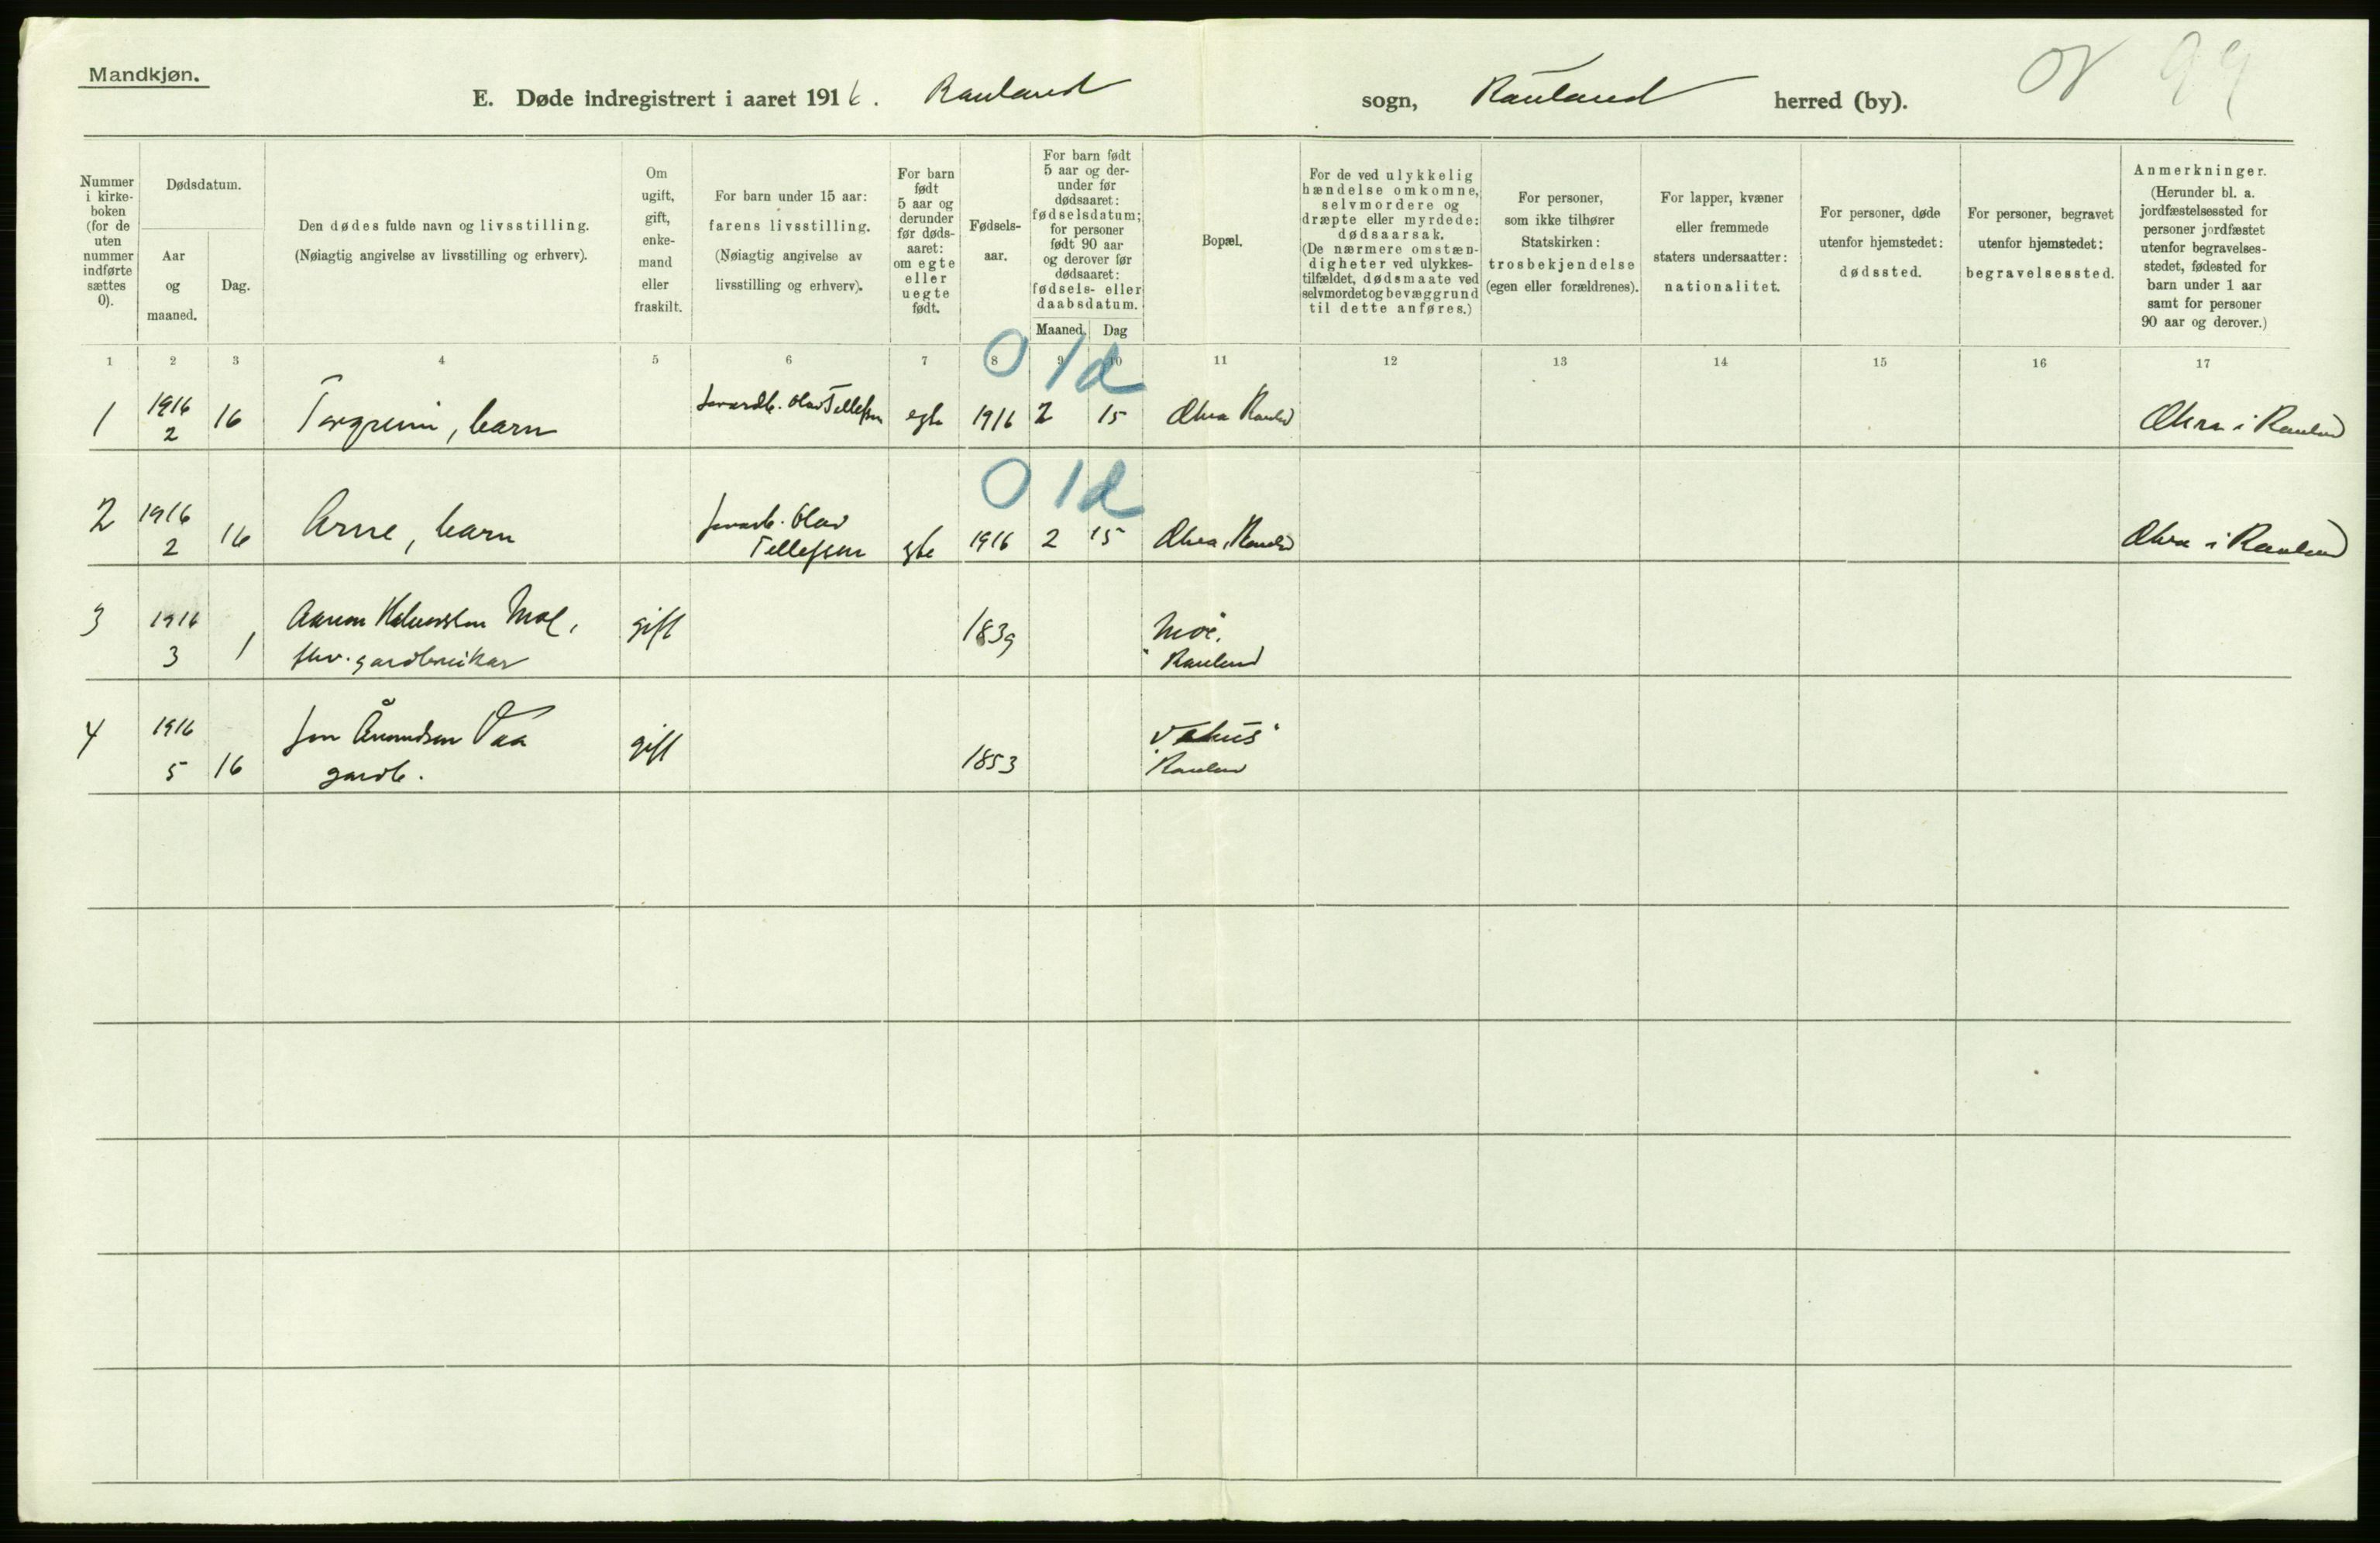 Mandkjøn.
E. Døde indregistrert i aaret 1916. Rauland sogn, Rauland herred (by).
99
Nummer i kirke- boken (for de uten nummer indførte sættes 0).
Dødsdatum.
Aar og maaned.
Dag.
Den dødes fulde navn og livsstilling.
(Nøiagtig angivelse av livsstilling og erhverv).
Om ugift, gift, enke- mand eller fraskilt.
For barn under 15 aar: farens livsstilling.
(Nøiagtig angivelse av livsstilling og erhverv).
For barn født 5 aar og derunder før døds- aaret: om egte eller uegte født.
Fødsels- aar.
For barn født 5 aar og der- under før dødsaaret: fødselsdatum; for personer født 90 aar og derover før dødsaaret: fødsels- eller daabsdatum.
Maaned. Dag
Bopæl.
For de ved ulykkelig hændelse omkomne, selvmordere og dræpte eller myrdede: dødsaarsak. (De nærmere omstæn- digheter ved ulykkes- tilfældet, dødsmaate ved selvmordet og bevæggrund til dette anføres.)
For personer, som ikke tilhører Statskirken: trosbekjendelse (egen eller forældrenes).
For lapper, kvæner eller fremmede staters undersaatter: nationalitet.
For personer, døde utenfor hjemstedet: dødssted.
For personer, begravet utenfor hjemstedet: begravelsessted.
Anmerkninger. (Herunder bl. a. jordfæstelsessted for personer jordfæstet utenfor begravelses- stedet, fødested for barn under 1 aar samt for personer 90 aar og derover.)
1 2 3 4 5 6 7 8 9 10 11 12 13 14 15 16 17
0 1d
1 1916 2 16 Torgrim, barn Olav Tellefsen egte 1916 2 15 Rauland i Rauland
0 1d
2 1916 2 16 Arne, barn Olav
Tellefsen egte 1916 2 15 Rauland i Rauland
3 1916 3 1 Halvorsson gift 1839 Moe,
gardbruikar Rauland
4 1916 5 16 Jon Åmundsen Vaa gift 1853
gardb. Rauland